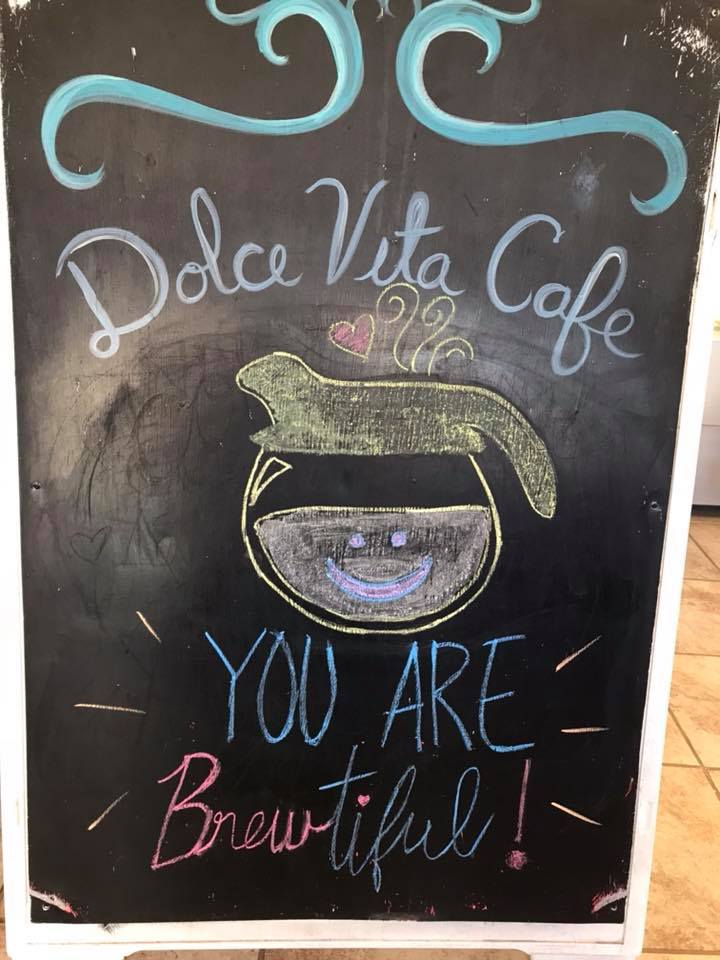 Dolce Vita Cafe
YOU ARE
Brewtiful!